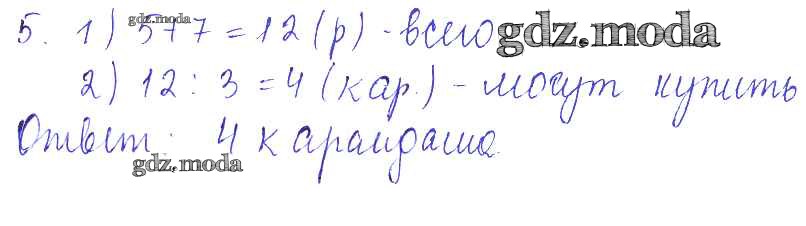 5. 1) 5+7=12 (р) - всего
2) 12 : 3 = 4 (кар.) - могут купить
Ответ: 4 карандаша.
gdz.moda
gdz.moda
gdz.moda